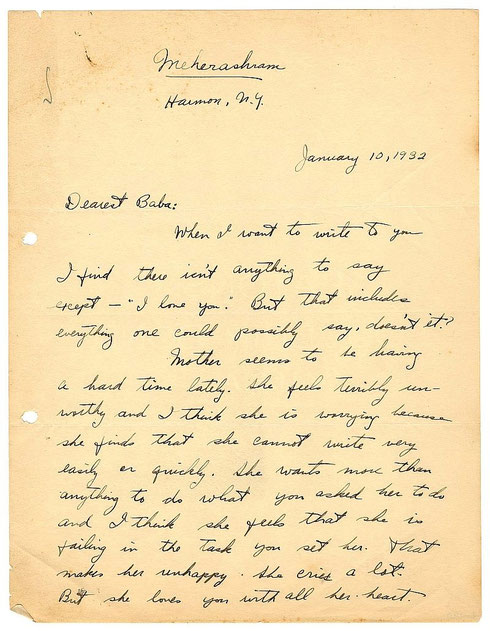 Meherashram
Harmon, N.Y.
January 10, 1932
Dearest Baba:
When I want to write to you
I find there isn't anything to say
except — "I love you." But that includes
everything one could possibly say, doesn't it?
Mother seems to be having
a hard time lately. She feels terribly un-
worthy and I think she is worrying because
she finds that she cannot write very
easily or quickly. She wants more than
anything to do what you asked her to do
and I think she feels that she is
failing in the task you set her. That
makes her unhappy. She cries a lot.
But she loves you with all her heart.